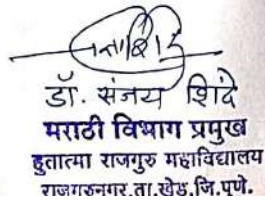 डॉ. संजय शिंदे
मराठी विभाग प्रमुख
हुतात्मा राजगुरु महाविद्यालय
राजगुरुनगर,ता.खेड,जि.पुणे.